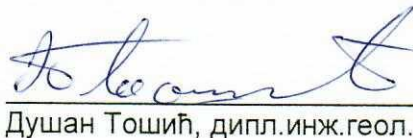 Душан Тошић, дипл.инж.геол.